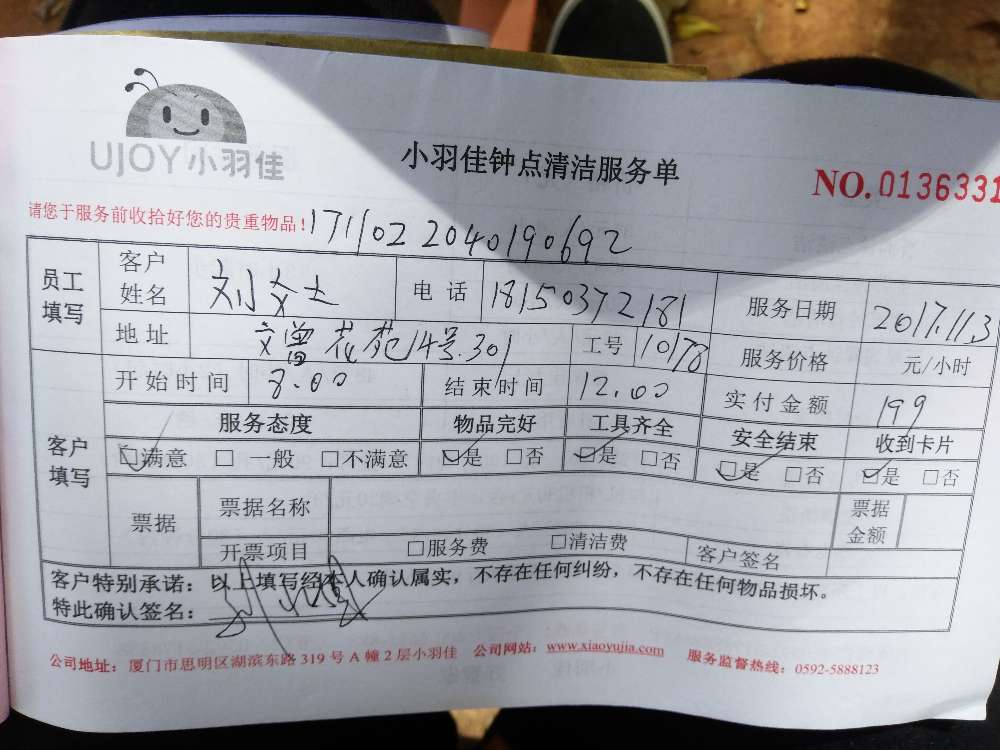 UJOY小羽佳
小羽佳钟点清洁服务单
NO. 0136331
请您于服务前收拾好您的贵重物品! 171102 2040190692
员工填写 客户姓名 刘女士 电话 18150372181 服务日期 2017.11.3
地址 文曾花苑14号.301 工号 10178 服务价格 元/小时
客户填写 开始时间 8.00 结束时间 12.00 实付金额 199
服务态度 物品完好 工具齐全 安全结束 收到卡片
☑满意 □一般 □不满意 ☑是 □否 ☑是 □否 ☑是 □否 ☑是 □否
票据 票据名称 票据金额
开票项目 □服务费 □清洁费 客户签名
客户特别承诺:以上填写经本人确认属实,不存在任何纠纷,不存在任何物品损坏。
特此确认签名:
公司地址:厦门市思明区湖滨东路 319 号 A 幢 2 层小羽佳 公司网站:www.xiaoyujia.com 服务监督热线:0592-5888123